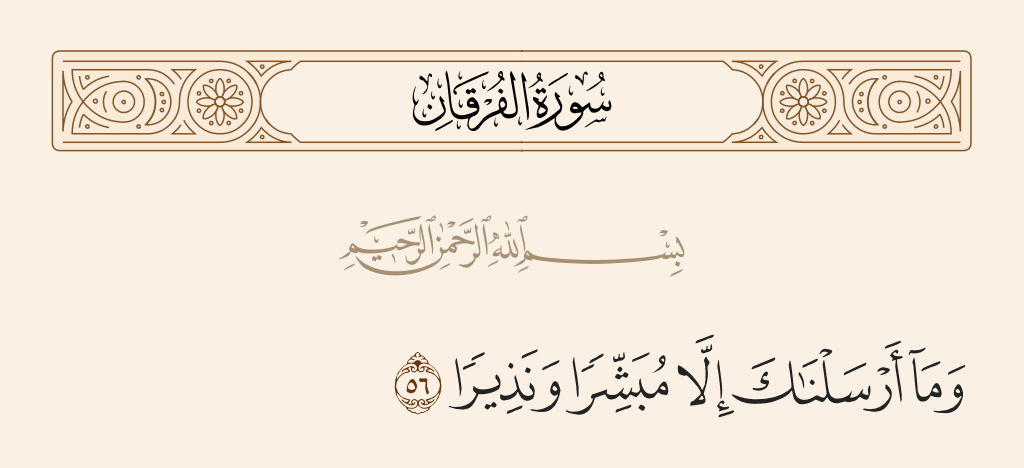 سُورَةُ الفُرْقَانِ
بِسْمِ ٱللَّهِ ٱلرَّحْمَٰنِ ٱلرَّحِيمِ
وَمَآ أَرْسَلْنَٰكَ إِلَّا مُبَشِّرًا وَنَذِيرًا ٥٦